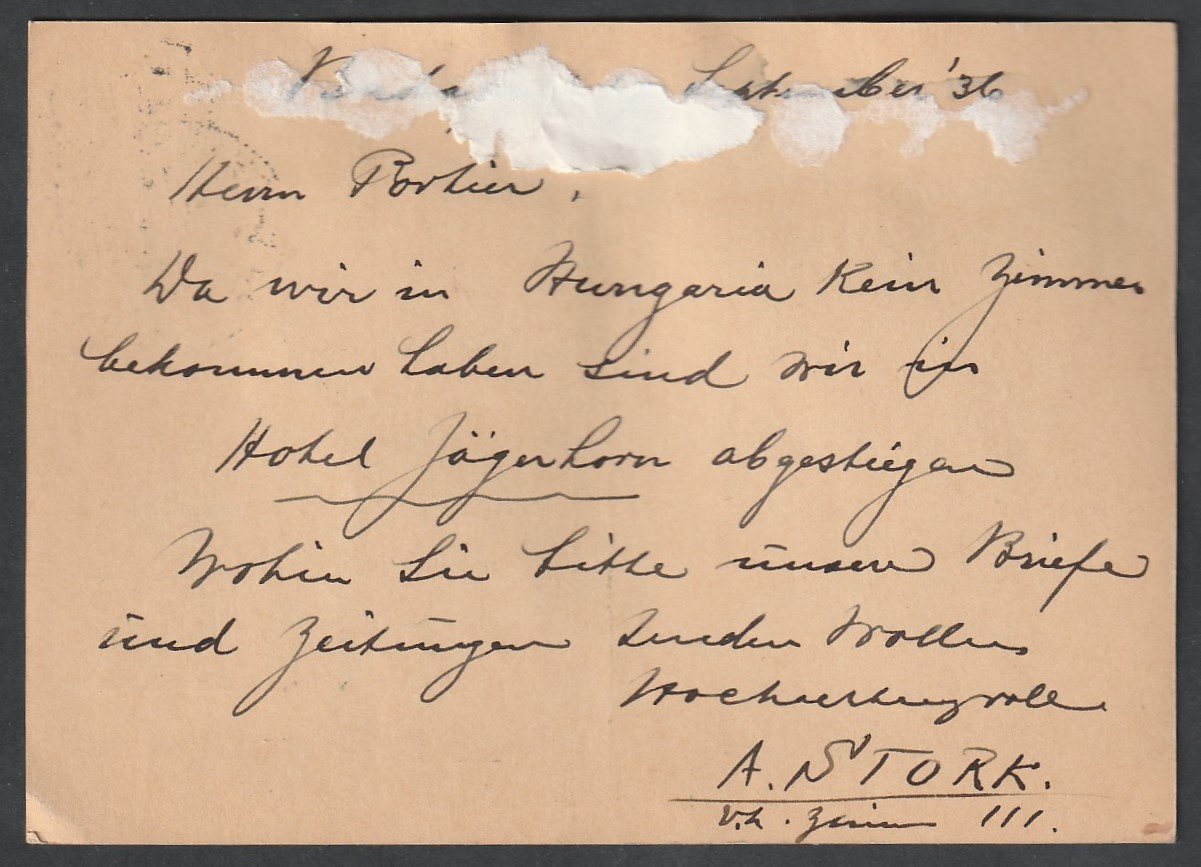 September '36
Herrn Portier,
Da wir in Hungaria kein Zimmer
bekommen haben sind wir in
Hotel Jägerhorn abgestiegen
Wohin Sie bitte unsere Briefe
und Zeitungen senden wollen
Hochachtungsvoll
A. STORK.
Zimm 111.